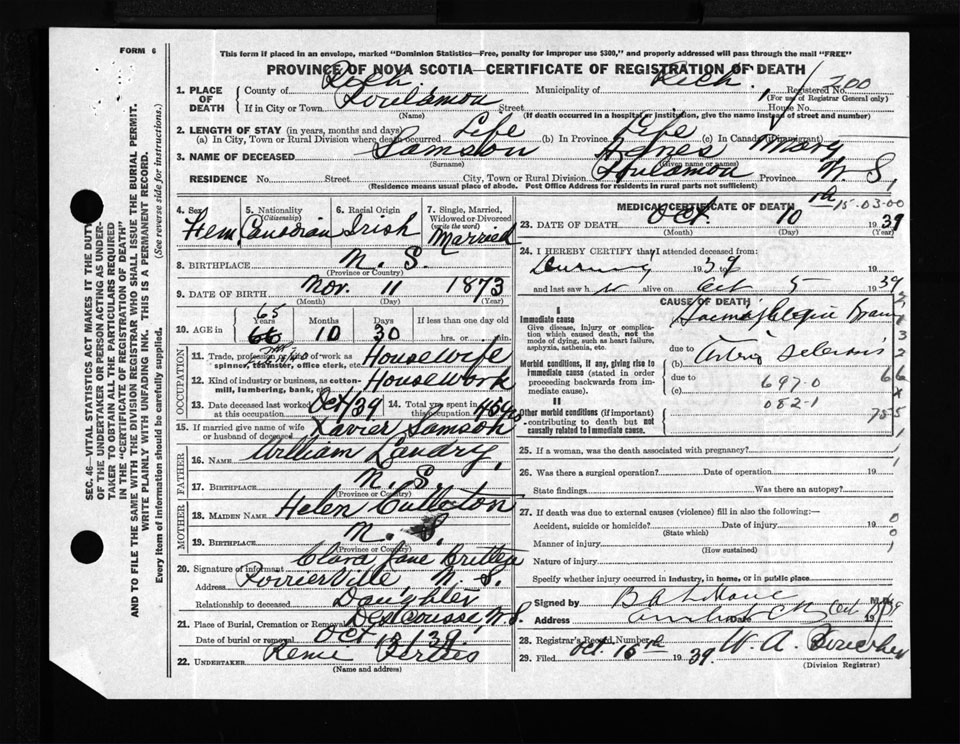 FORM 6
This form if placed in an envelope, marked "Dominion Statistics—Free, penalty for improper use $300," and properly addressed will pass through the mail "FREE"
PROVINCE OF NOVA SCOTIA—CERTIFICATE OF REGISTRATION OF DEATH
SEC. 46—VITAL STATISTICS ACT MAKES IT THE DUTY
OF THE UNDERTAKER OR PERSON ACTING AS UNDER-
TAKER TO OBTAIN ALL THE PARTICULARS REQUIRED
IN THE "CERTIFICATE OF REGISTRATION OF DEATH"
AND TO FILE THE SAME WITH THE DIVISION REGISTRAR WHO SHALL ISSUE THE BURIAL PERMIT.
WRITE PLAINLY WITH UNFADING INK. THIS IS A PERMANENT RECORD.
Every item of information should be carefully supplied. (See reverse side for instructions.)
1. PLACE OF DEATH
County of Rich Municipality of Rich. Registered No. 200
(For use of Registrar General only)
If in City or Town Poulamon Street House No.
(Name) (If death occurred in a hospital or institution, give the name instead of street and number)
2. LENGTH OF STAY (in years, months and days)
(a) In City, Town or Rural Division where death occurred Life (b) In Province Life (c) In Canada (if immigrant)
3. NAME OF DECEASED Samson Agnes Mary
(Surname) (Given name or names)
RESIDENCE No. Street City, Town or Rural Division Poulamon Province N. S.
(Residence means usual place of abode. Post Office Address for residents in rural parts not sufficient)
4. Sex Fem. 5. Nationality (Citizenship) Canadian 6. Racial Origin Irish 7. Single, Married, Widowed or Divorced (write the word) Married
8. BIRTHPLACE N. S.
(Province or Country)
9. DATE OF BIRTH Nov. 11 1873
(Month) (Day) (Year)
10. AGE in 65 66 Years 10 Months 30 Days If less than one day old hrs. or min.
OCCUPATION
11. Trade, profession or kind of work as spinner, teamster, office clerk, etc. Housewife
12. Kind of industry or business, as cotton-mill, lumbering, bank, etc. Housework
13. Date deceased last worked at this occupation Oct/39 14. Total yrs. spent in this occupation 45 yrs
15. If married give name of wife or husband of deceased Xavier Samson
FATHER
16. NAME William Landry
17. BIRTHPLACE N. S.
(Province or Country)
MOTHER
18. MAIDEN NAME Helen Culleton
19. BIRTHPLACE N. S.
(Province or Country)
20. Signature of informant Clara Jane
Address Poirierville N. S.
Relationship to deceased Daughter
21. Place of Burial, Cremation or Removal Descousse, N. S.
Date of burial or removal Oct 13/39
22. UNDERTAKER
(Name and address)
MEDICAL CERTIFICATE OF DEATH
15-03-00
23. DATE OF DEATH Oct. 10th 1939
(Month) (Day) (Year)
24. I HEREBY CERTIFY that I attended deceased from:
During 1939 19
and last saw h alive on Oct 5 1939
CAUSE OF DEATH
I
Immediate cause
Give disease, injury or complication which caused death, not the mode of dying, such as heart failure, asphyxia, asthenia, etc.
(a)
due to
Morbid conditions, if any, giving rise to immediate cause (stated in order proceeding backwards from immediate cause).
(b) Arterio
due to 697-0
(c) 082-1
II
Other morbid conditions (if important) contributing to death but not causally related to immediate cause.
25. If a woman, was the death associated with pregnancy?
26. Was there a surgical operation? Date of operation 19
State findings Was there an autopsy?
27. If death was due to external causes (violence) fill in also the following:—
Accident, suicide or homicide? Date of injury 19
(State which)
Manner of injury
(How sustained)
Nature of injury
Specify whether injury occurred in industry, in home, or in public place
Signed by M.D.
Address Date Oct 19
28. Registrar's Record Number
29. Filed Oct. 16th 1939 W. A.
(Division Registrar)